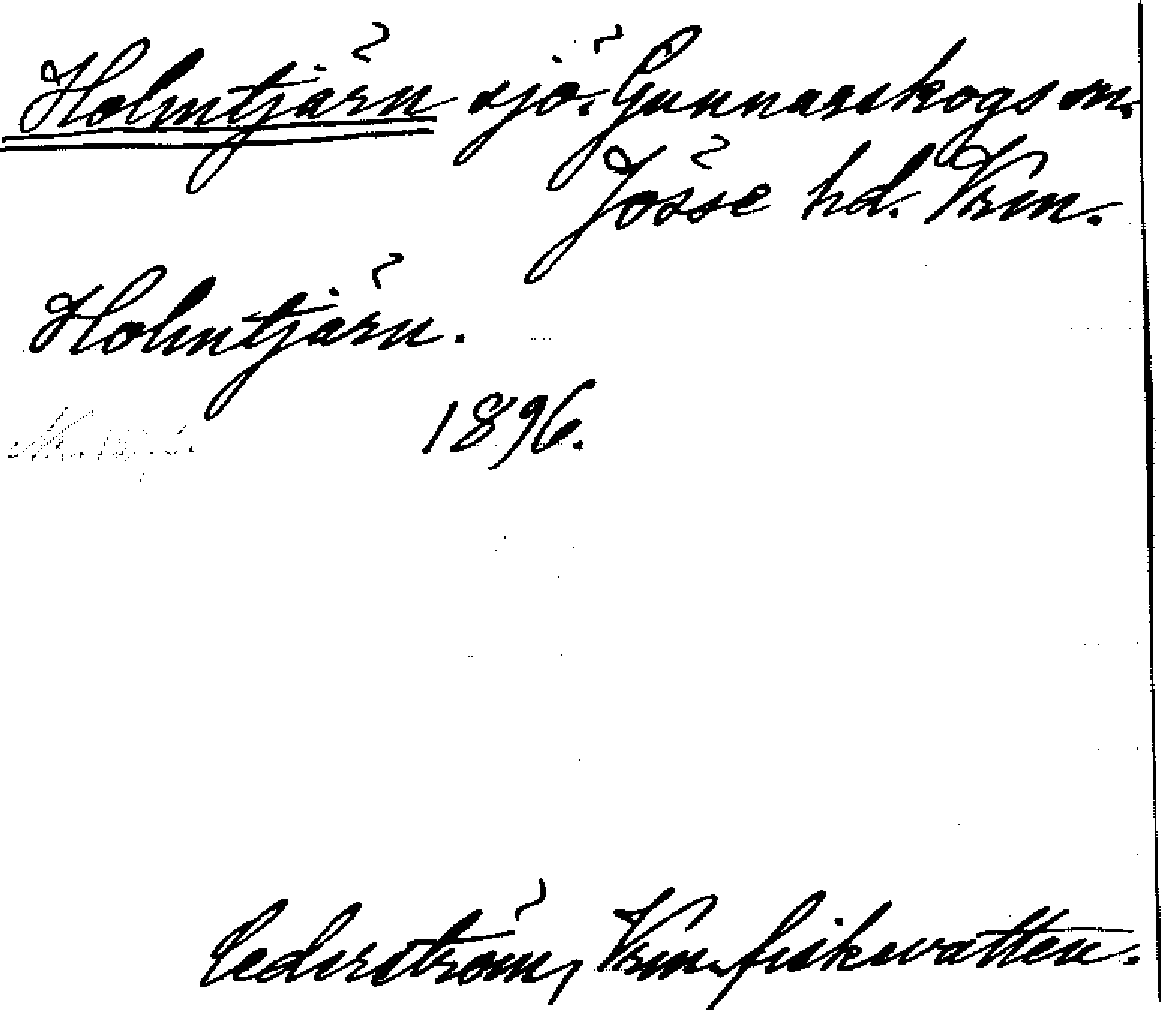 Holmtjärn sjö. Gunnarskogs sn.
Jösse hd. Vrm.
Holmtjärn.
1896.
Cederström, Vrm. fiskevatten.